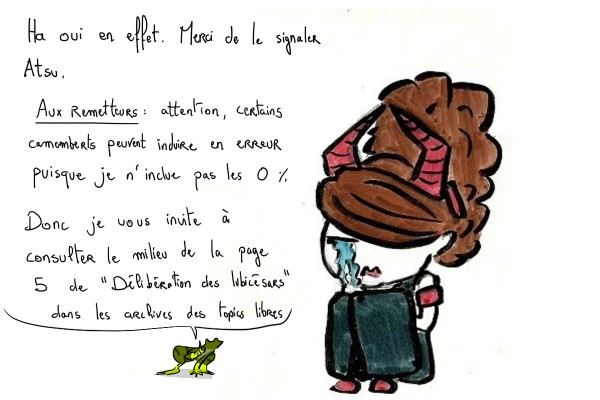 Ha oui en effet. Merci de le signaler
Atsu.
Aux Remetteurs : attention, certains
camemberts peuvent induire en erreur
puisque je n'inclue pas les 0 %.
Donc je vous invite à
consulter le milieu de la page
5 de "Délibération des lubicésars"
dans les archives des topics libres